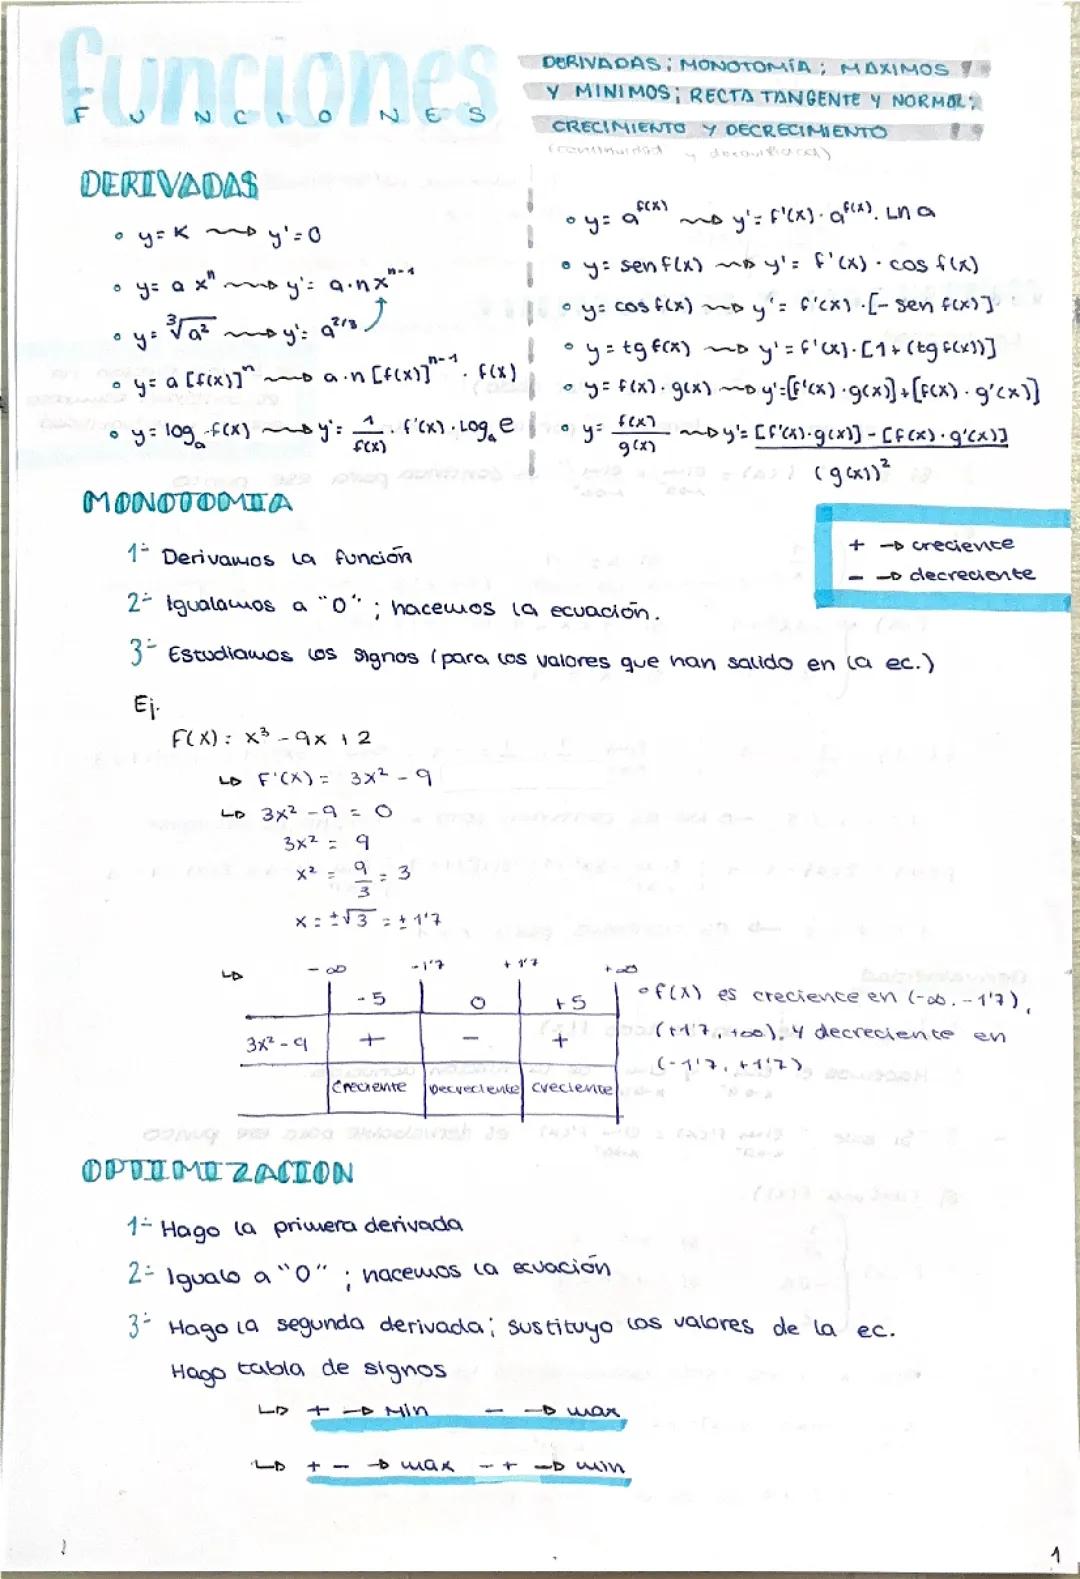 funciones
FUNCIONES
DERIVADAS; MONOTOMÍA; MAXIMOS
Y MINIMOS; RECTA TANGENTE Y NORMAL;
CRECIMIENTO Y DECRECIMIENTO
(continuidad y
DERIVADAS
• y= K ⟿ y'=0
• y= a xⁿ ⟿ y'= a·n xⁿ⁻¹
• y= ∛a² ⟿ y'= a^2/3
• y= a [f(x)]ⁿ ⟿ a·n [f(x)]ⁿ⁻¹ · f(x)
• y= logₐ f(x) ⟿ y'= 1/f(x) · f'(x) · Logₐ e
• y= a^f(x) ⟿ y'= f'(x) · a^f(x) . Ln a
• y= sen f(x) ⟿ y'= f'(x) · cos f(x)
• y= cos f(x) ⟿ y'= f'(x) · [- sen f(x)]
• y= tg f(x) ⟿ y'= f'(x) · [1+(tg f(x))]
• y= f(x) · g(x) ⟿ y'=[f'(x) · g(x)]+[f(x) · g'(x)]
• y= f(x)/g(x) ⟿ y'= [f'(x)·g(x)] - [f(x)·g'(x)]/(g(x))²
MONOTOMIA
+ → creciente
- → decreciente
1º- Derivamos la función
2º- Igualamos a "0"; hacemos la ecuación.
3º- Estudiamos los signos (para los valores que han salido en la ec.)
Ej.
F(X): x³ - 9x + 2
↳ F'(X)= 3x² - 9
↳ 3x² - 9 = 0
3x² = 9
x² = 9/3 = 3
x = ±√3 = ±1'7
↳ -∞ -1'7 +1'7 +∞
-5 0 +5
3x²-9 + - +
Creciente Decreciente creciente
• f(x) es creciente en (-∞, -1'7),
(+1'7, +∞). Y decreciente en
(-1'7, +1'7)
OPTIMIZACION
1º- Hago la primera derivada
2º- Igualo a "0"; hacemos la ecuación
3º- Hago la segunda derivada; sustituyo los valores de la ec.
Hago tabla de signos
↳ + → Min - → max
↳ + - → max - + → min
1